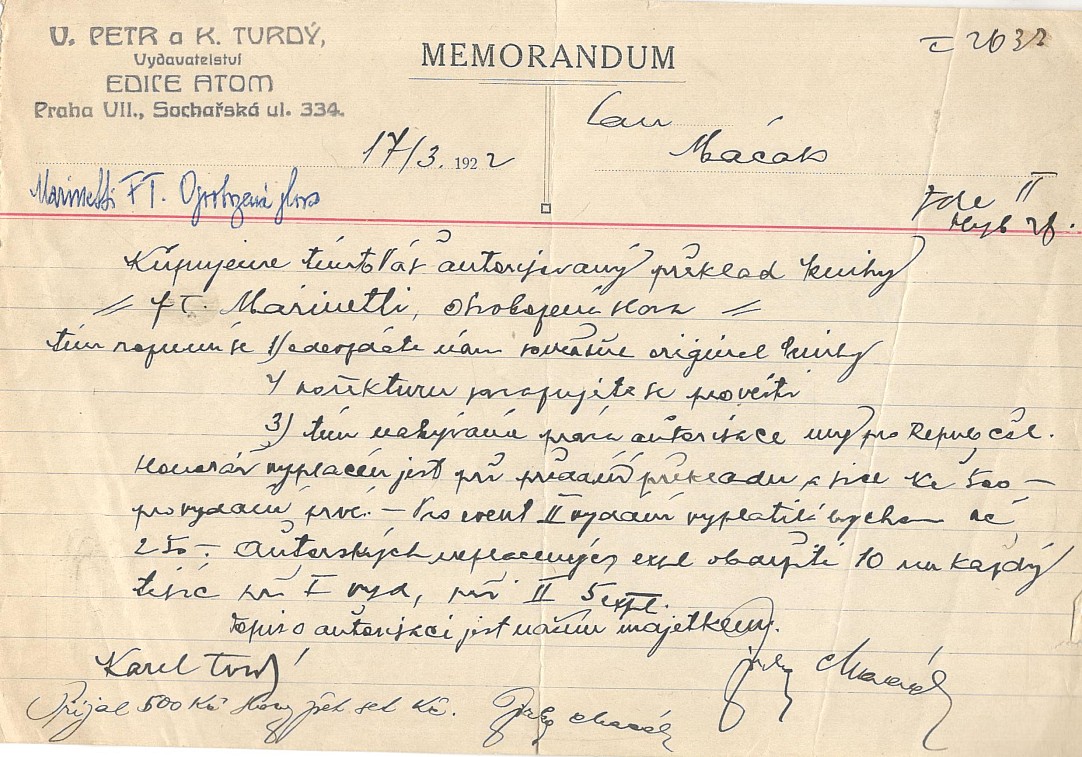 V. PETR a K. TVRDÝ,
Vydavatelství
EDICE ATOM
Praha VII., Sochařská ul. 334.
MEMORANDUM
2032
17/3. 1922
Pan
Macák
Zde II
Marinetti FT. Osvobozená slova
Kupujeme tímto Váš autorisovaný překlad knihy
= F. T. Marinetti, Osvobozená slova =
tím rozumí se 1) odevzdáte nám současně originel knihy
2) korekturu zavazujete se provésti
3) tím nabýváme práva autorisace my pro Repub čsl.
Honorář vyplacen jest při předání překladu a sice Kč 500 —
pro vydání prvé. — Pro event II vydání vyplatili bychom Kč
250 —. Autorských neplacených expl obdržíte 10 na každý
tisíc při I vyd, při II 5 expl.
Dopis o autorisaci jest naším majetkem.
Karel Tvrdý
Jirka Macák
Přijal 500 Kč slovy pět set Kč. Jirka Macák